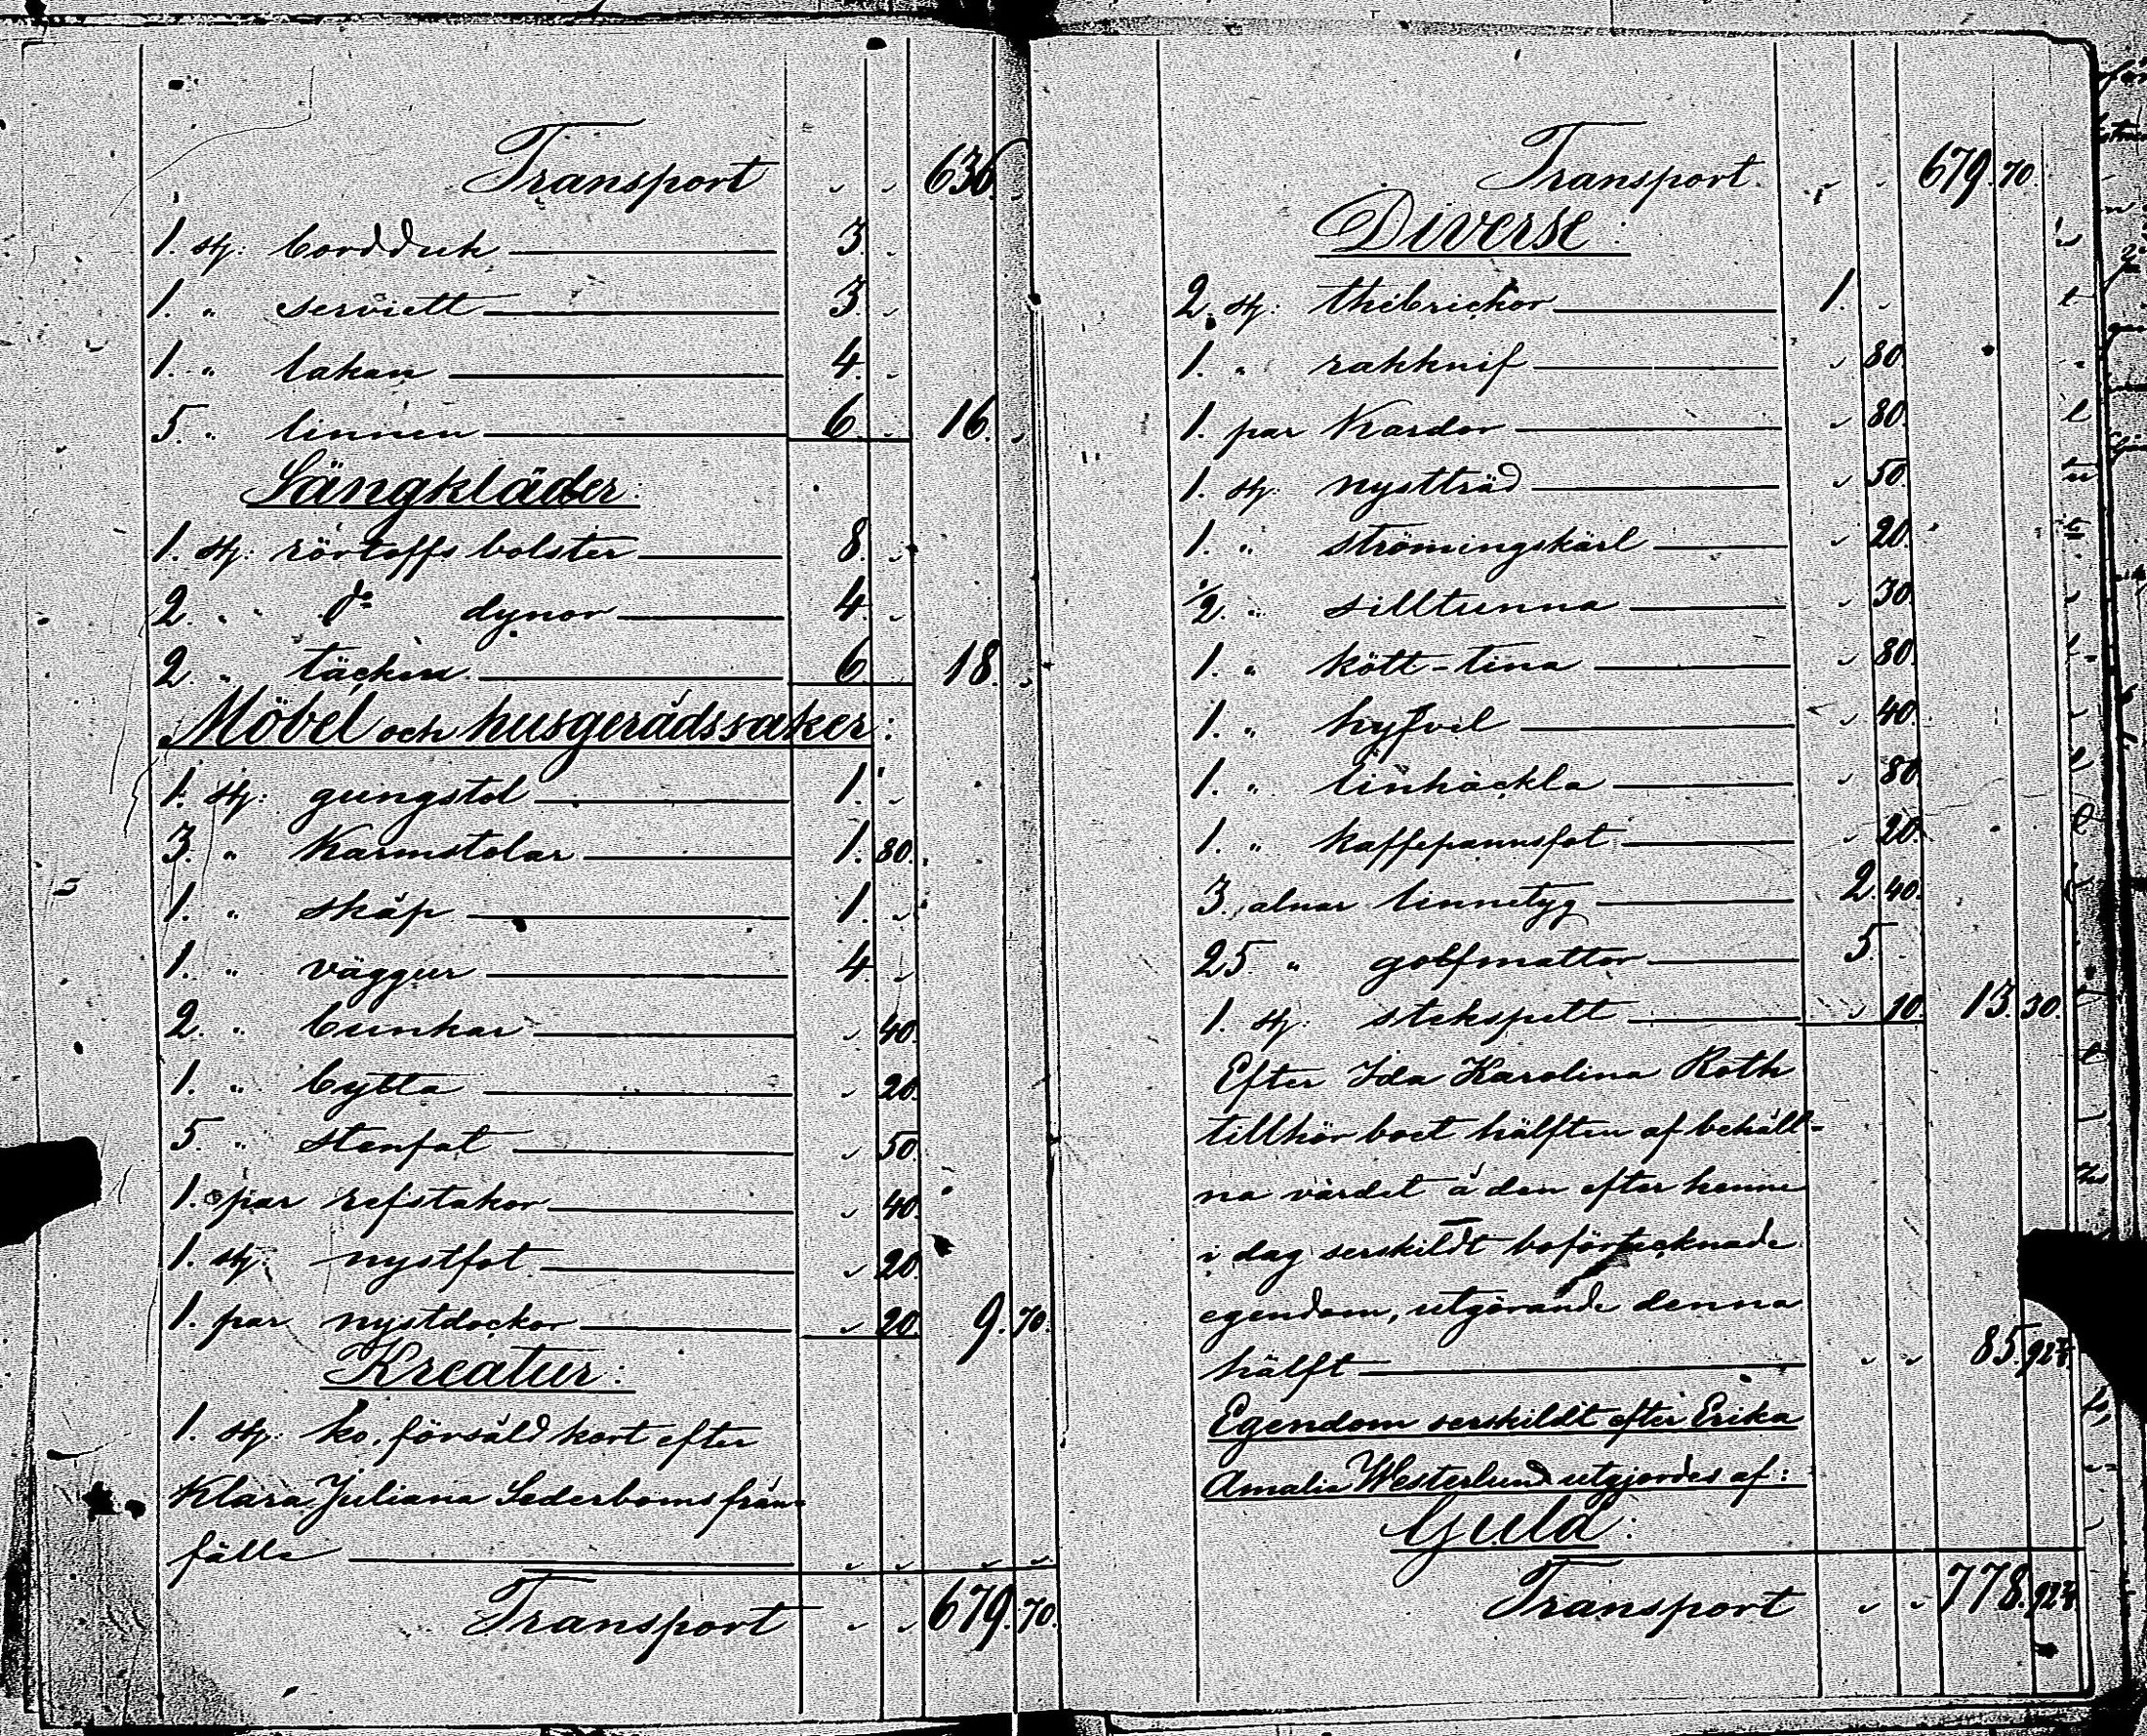 Transport " " 636 "
1. st: bordduk 3. "
1. " serviett 3. "
1. " lakan 4. "
5. " linnen 6. " 16. "
Sängkläder:
1. st: rörtoffs bolster 8. "
2. " d:o dynor 4. "
2. " täcken 6 " 18. "
Möbel och husgerådssaker:
1. st: gungstol 1. "
3. " Karmstolar 1. 80.
1. " skåp 1. "
1. " väggur 4. "
2. " bunkar " 40.
1. " bytta " 20.
5. " stenfat " 50.
1. par refstakor " 40.
1. st: nystfot " 20.
1. par nystdockor " 20. 9. 70.
Kreatur:
1. st: ko, försåld kort efter
Klara Juliana Sederboms från-
fälle " " " "
Transport " " 679. 70.
Transport " " 679. 70.
Diverse:
2. st: thebrickor 1. "
1. " rakknif " 80.
1. par Kardor " 80.
1. st: nystträd " 50.
1. " strömingskärl " 20.
1/2. " silltunna " 30
1. " kött-tina " 80.
1. " hyfvel " 40
1. " linhäckla " 80
1. " kaffepannsfot " 20.
3. alnar linnetyg 2. 40.
25 " golfmattor 5. "
1. st: stekspett " 10. 13. 30.
Efter Ida Karolina Roth
tillhör boet hälften af behåll-
na värdet å den efter henne
i dag serskildt boförtecknade
egendom, utgörande denna
hälft " " 85. 92 1/2
Egendom serskildt efter Erika
Amalia Westerlund utgjordes af:
Guld:
Transport " " 778. 92 1/2